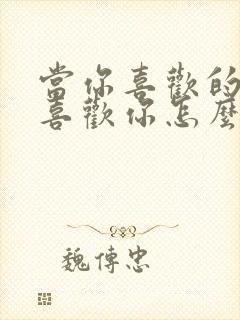 當你喜歡的
喜歡你怎麼
魏傳忠